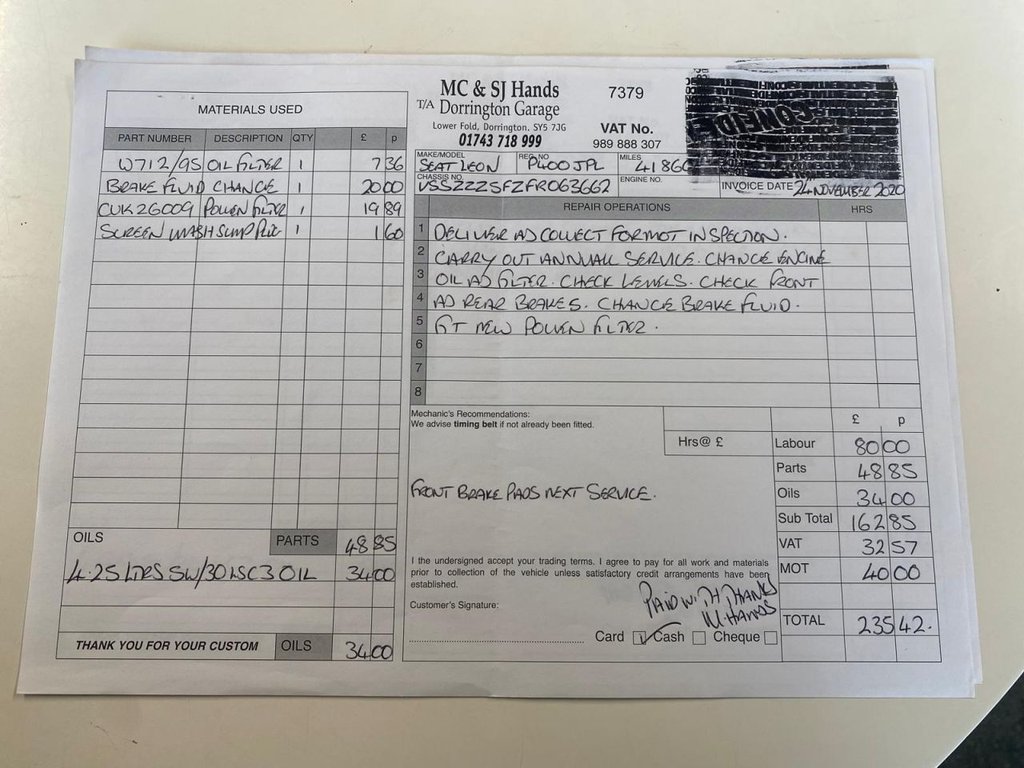 MATERIALS USED
PART NUMBER DESCRIPTION QTY £ p
W712/95 OIL FILTER 1 7 36
BRAKE FLUID CHANGE 1 20 00
CUK26009 POLLEN FILTER 1 19 89
SCREEN WASH SUMP PLUG 1 1 60
OILS PARTS 48 85
4.25 LTRS 5W/30 LSC3 OIL 34 00
THANK YOU FOR YOUR CUSTOM OILS 34 00
MC & SJ Hands
T/A Dorrington Garage
Lower Fold, Dorrington. SY5 7JG
01743 718 999
7379
VAT No.
989 888 307
MAKE/MODEL SEAT LEON REG NO P400 JPL MILES 41866
CHASSIS NO VSSZZZ5FZFR063662 ENGINE NO.
INVOICE DATE 24 NOVEMBER 2020
REPAIR OPERATIONS HRS
1 DELIVER AD COLLECT FOR MOT INSPECTION.
2 CARRY OUT ANNUAL SERVICE. CHANGE ENGINE
3 OIL AD FILTER. CHECK LEVELS. CHECK FRONT
4 AD REAR BRAKES. CHANGE BRAKE FLUID.
5 FIT NEW POLLEN FILTER.
6
7
8
Mechanic's Recommendations:
We advise timing belt if not already been fitted.
FRONT BRAKE PADS NEXT SERVICE.
£ p
Hrs@ £ Labour 80 00
Parts 48 85
Oils 34 00
Sub Total 162 85
VAT 32 57
MOT 40 00
TOTAL 235 42.
I the undersigned accept your trading terms. I agree to pay for all work and materials
prior to collection of the vehicle unless satisfactory credit arrangements have been
established.
PAID WITH THANKS
M. HANDS
Customer's Signature:
Card Cash Cheque